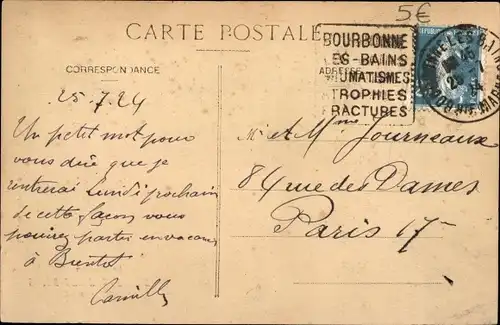 5€
CARTE POSTALE
BOURBONNE
LES-BAINS
UMATISMES
TROPHIES
RACTURES
CORRESPONDANCE
ADRESSE
25.7.24
Un petit mot pour
vous dire que je
rentrerai Lundi prochain
de cette façon vous
pouvez partir en vacances
à Bientot
Camille
Mr et Mme Journeaux
84 rue des Dames
Paris 17e